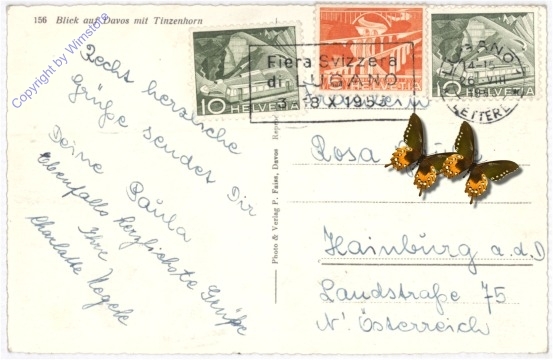 156 Blick auf Davos mit Tinzenhorn
Copyright by Wimstore
Recht herzliche
Grüße sendet Dir
Deine Paula
Ebenfalls herzlichste Grüße
Ihre
Charlotte
Photo & Verlag P. Faiss, Davos
10 HELVETIA
HELVETIA
10 HELVETIA
Fiera Svizzera
di LUGANO
3-18 X 1953
LUGANO 1
14-15
26 VIII
LETTERE
Rosa
Hainburg a.d.D
Landstraße 75
N'Österreich